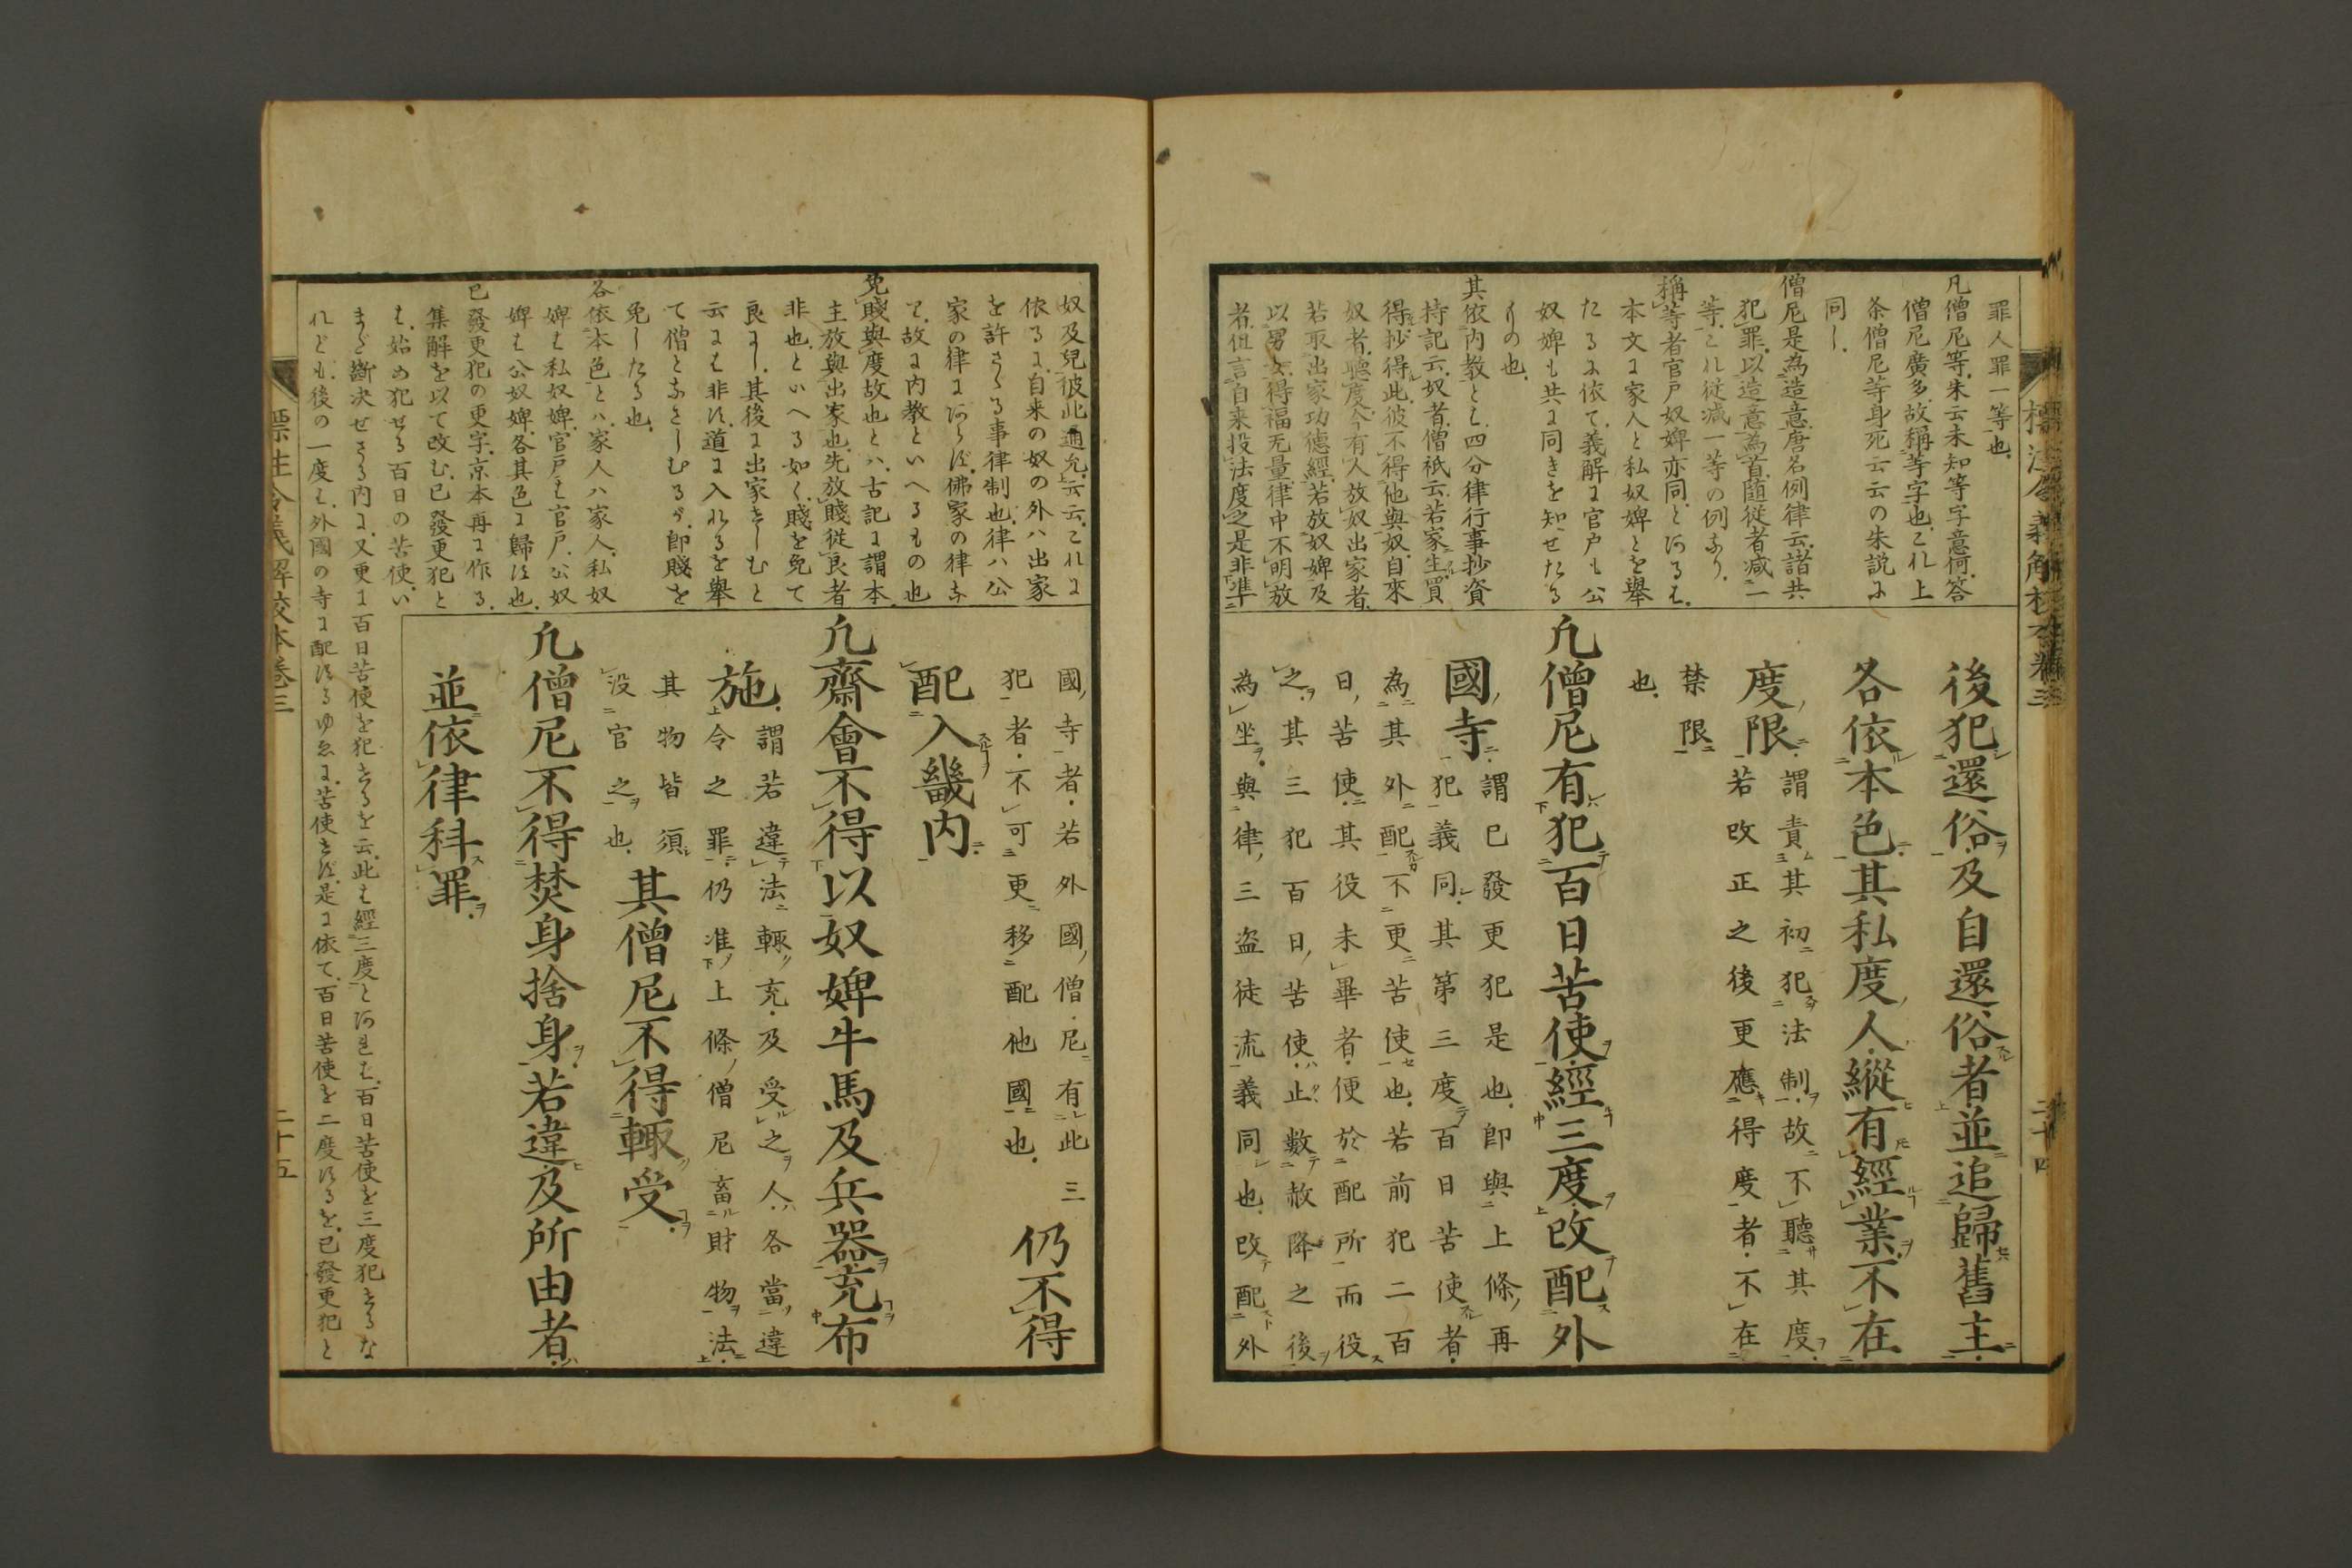 罪人罪一等也
凡僧尼等朱云未知等字意何答
僧尼廣多故稱等字也これ上
条僧尼等身死云云の朱説に
同し
僧尼是為造意唐名例律云諸共
犯罪以造意為首随従者減一
等これ従減一等の例なり
稱等者官戸奴婢亦同とあるは
本文に家人と私奴婢とを舉
たるに依て義解に官戸も公
奴婢も共に同きを知せたる
もの也
其依内教とは四分律行事抄資
持記云奴者僧祇云若家生買
得抄得此彼不得他與奴自來
奴者聽度今有人放奴出家者
若取出家功德經若放奴婢及
以男女得福无量律中不明放
者但言自来投法度之是非準
後犯還俗及自還俗者並追歸舊主
各依本色其私度人縱有經業不在
度限謂責其初犯法制故不聽其度
若改正之後更應得度者不在
禁限
也
凡僧尼有犯百日苦使經三度改配外
國寺謂已發更犯是也即與上條再
犯義同其第三度百日苦使者
為其外配不更苦使也若前犯二百
日苦使其役未畢者便於配所而役
之其三犯百日苦使止數赦降之後
為坐與律三盗徒流義同也改配外
奴及兒彼此通允云云これに
依るに自来の奴の外ハ出家
を許さゝる事律制也律ハ公
家の律にあらす佛家の律な
り故に内教といへるもの也
免賤與度故也とハ古記に謂本
主放與出家也先放賤從良者
非也といへる如く賤を免て
良にし其後に出家せしむと
云にも非す道に入れるを舉
て僧となさしむるが即賤を
免したる也
各依本色とハ家人ハ家人私奴
婢も私奴婢官戸も官戸公奴
婢も公奴婢各其色に歸す也
已發更犯の更字京本再に作る
集解を以て改む已發更犯と
は始め犯せる百日の苦使い
まだ断决せさる内に又更に百日苦使を犯するを云此も經三度とあれは百日苦使を三度犯するな
れども後の一度は外國の寺に配するゆゑに苦使せす是に依て百日苦使を二度するを已發更犯と
國寺者若外國僧尼有此三
犯者不可更移配他國也仍不得
配入畿内
凡齋會不得以奴婢牛馬及兵器充布
施謂若違法輙充及受之人各當違
令之罪仍准上條僧尼畜財物法
其物皆須
沒官之也其僧尼不得輙受
凡僧尼不得焚身捨身若違及所由者
並依律科罪
標注令義解校本卷三
二十五